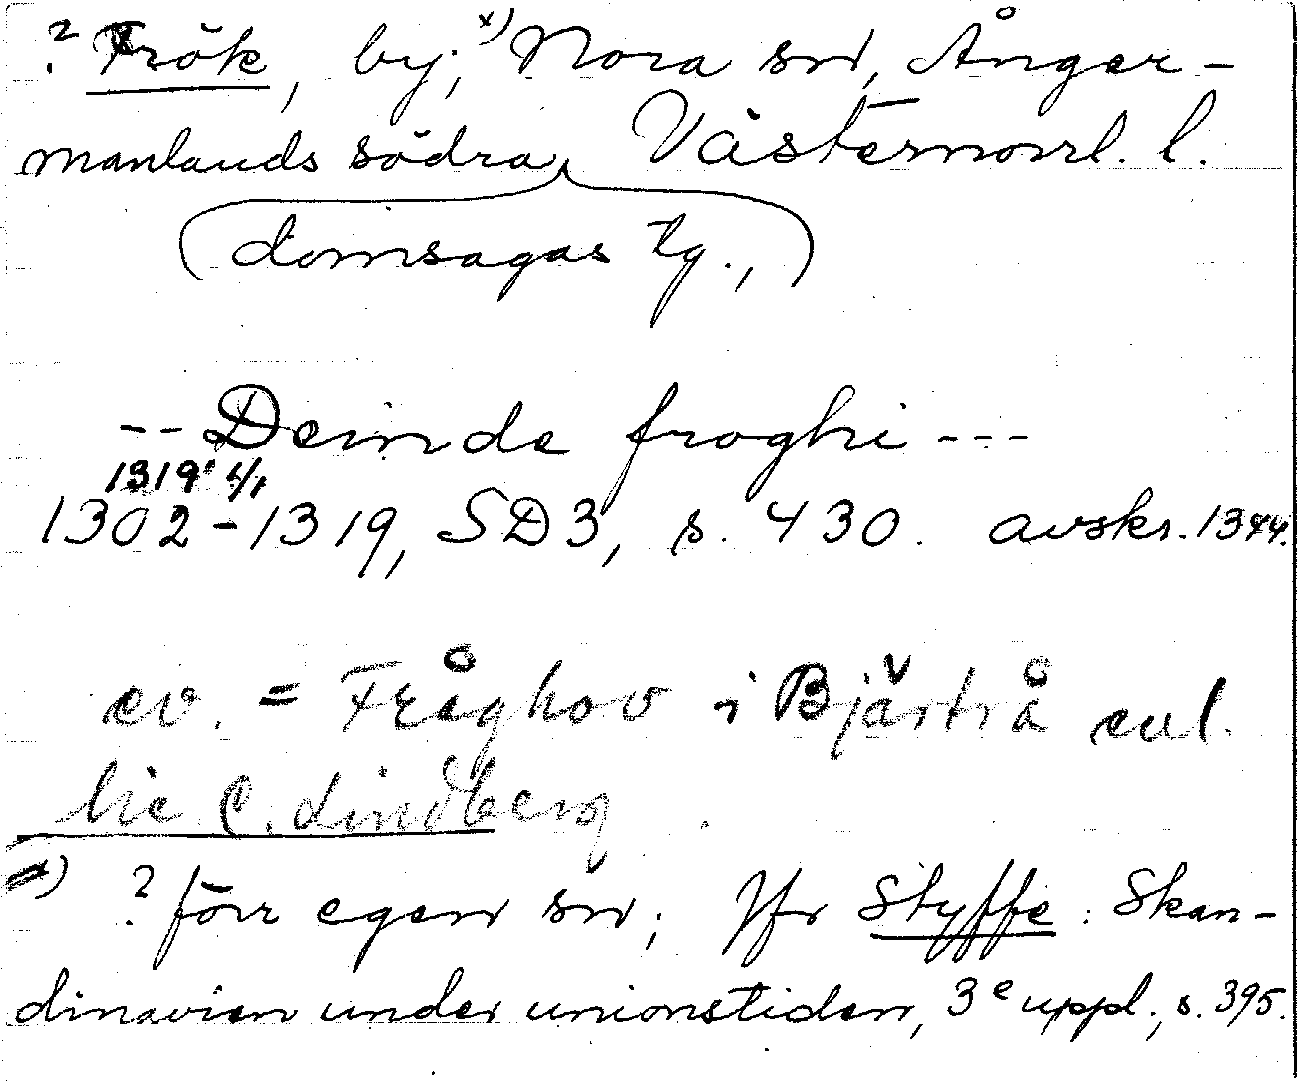 ? Frök, by, x) Nora sn, Ånger-
manlands södra Västernorrl. l.
(domsagas tg.,)
-- Deinde froghi ---
1319 1/1
1302-1319, SD3, s. 430. avskr. 1344.
ev. = Fråghov i Bjärtrå enl.
lic C. Lindberg
x) ? förr egen sn; Jfr Styffe: Skan-
dinavien under unionstiden, 3e uppl., s. 395.